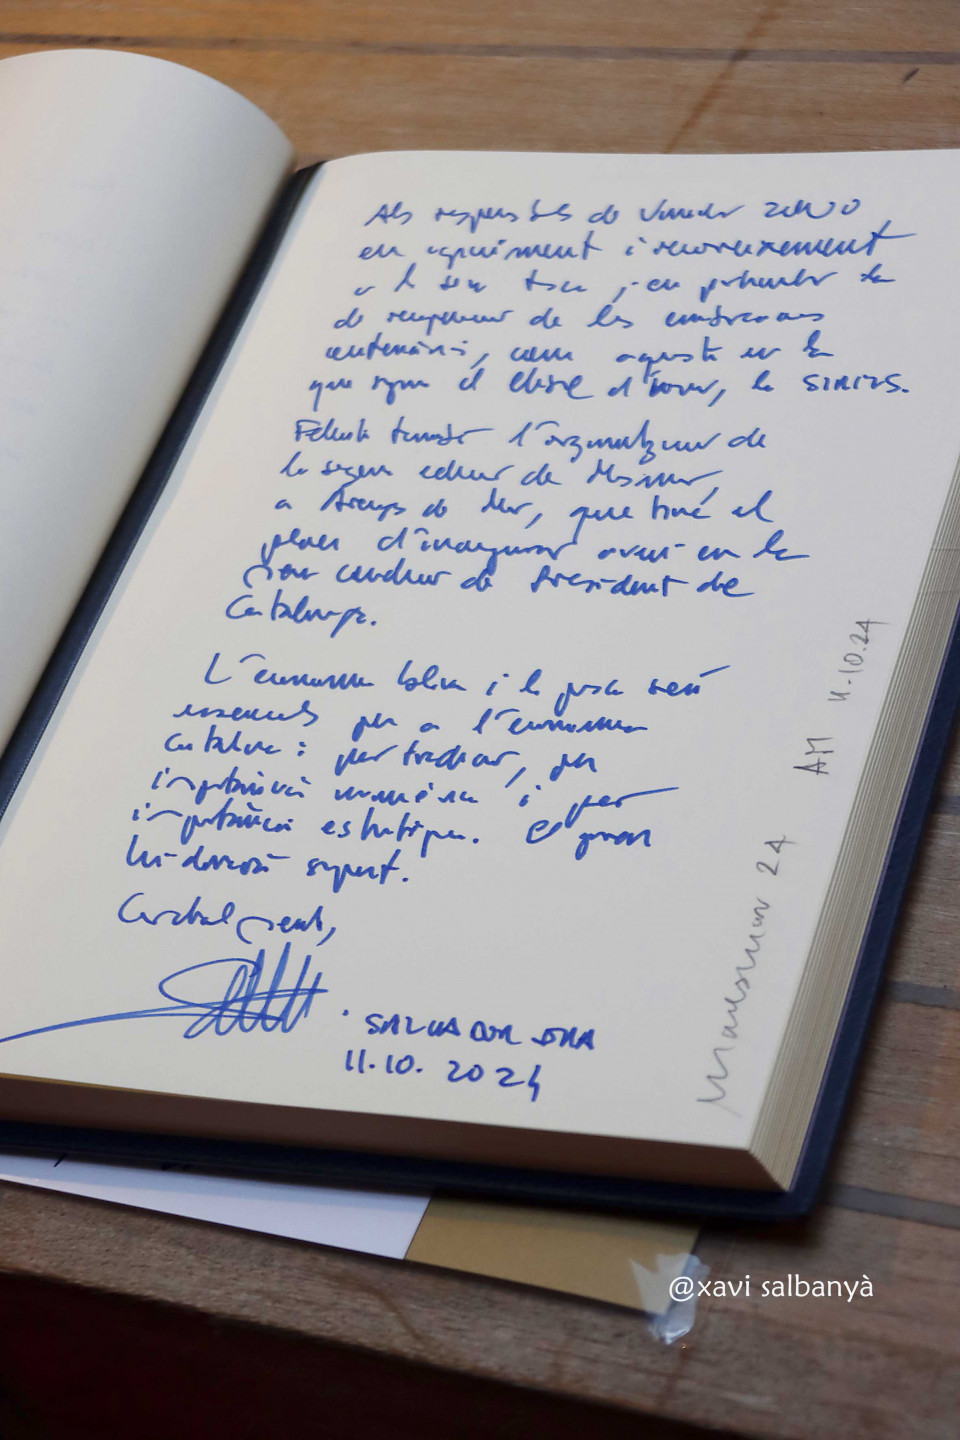 Als responsables de
en agraïment i reconeixement
a la seva tasca, i en particular la
de recuperació de les embarcacions
centenàries, com aquesta en la
que signo el llibre d'honor, la SIRIUS.
Felicito també l'organització de
la segona edició de
a Arenys de Mar, que tinc el
plaer d'inaugurar avui en la
meva condició de President de
Catalunya.
L'economia blava i la pesca són
essencials per a l'economia
catalana: per tradició, per
importància numèrica i per
importància estratègica. El govern
hi donarà suport.
Cordialment,
SALVADOR ILLA
11.10.2024
24
AM 11.10.24
@xavi salbanyà